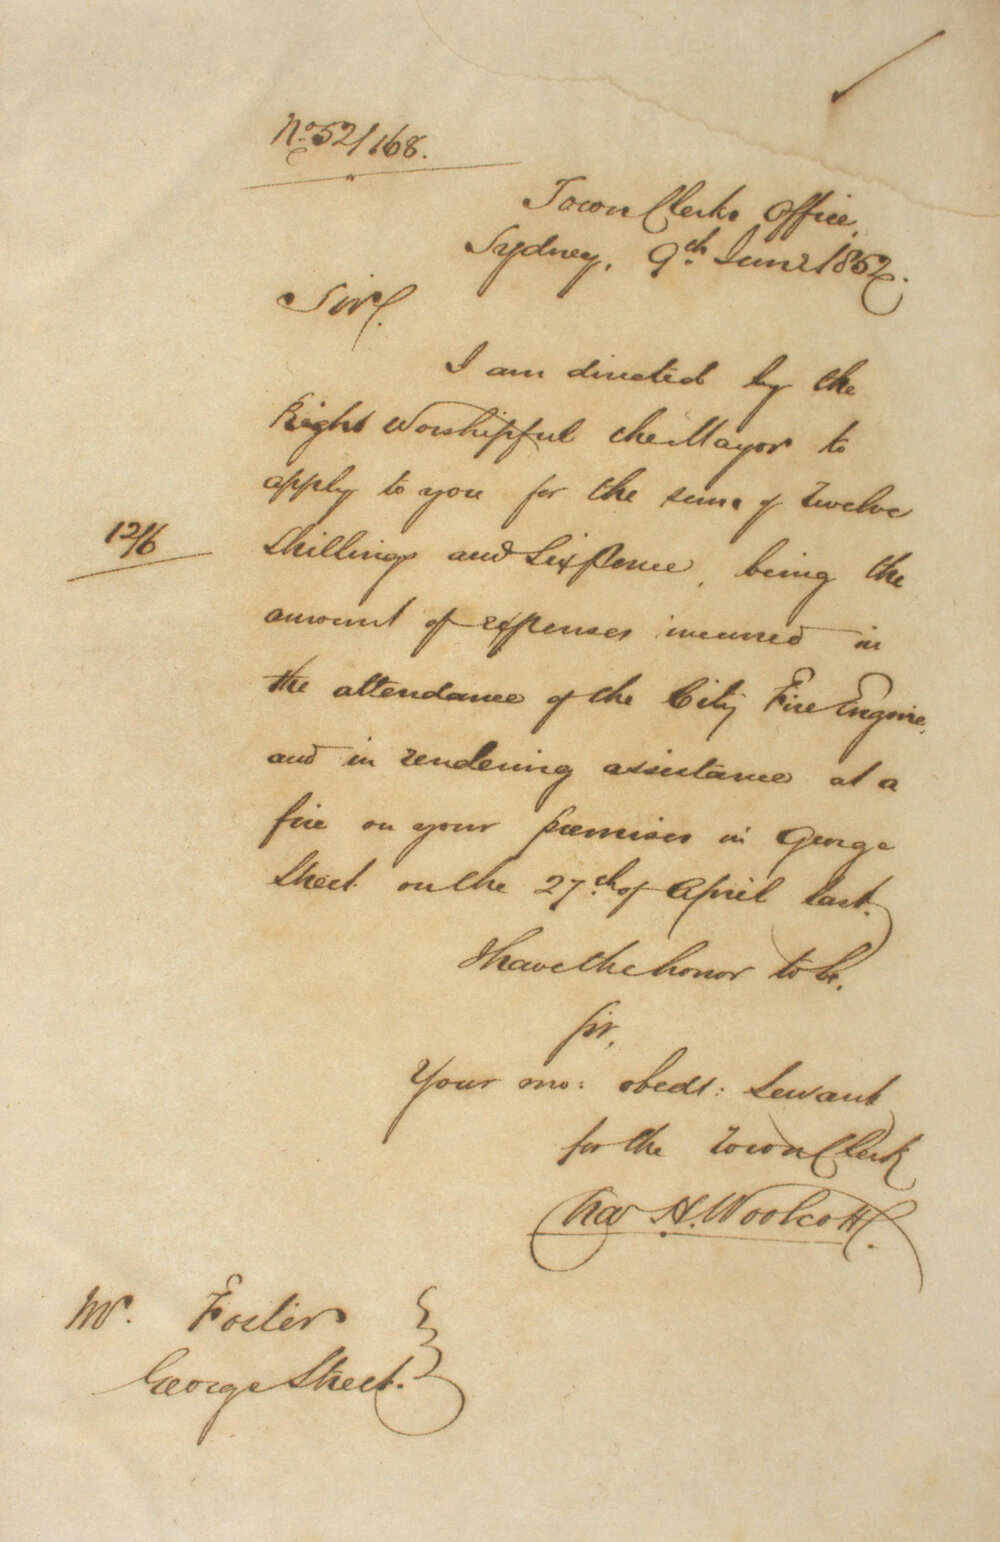 No. 52/168.
Town Clerks Office,
Sydney, 9th June 1852.
Sir,
I am directed by the
Right Worshipful the Mayor to
apply to you for the sum of Twelve
12/6
Shillings and Six Pence, being the
amount of expenses incurred in
the attendance of the City Fire Engine,
and in rendering assistance at a
fire on your premises in George
Street on the 27th of April last.
I have the honor to be,
Sir,
Your mo: obedt: Servant
for the Town Clerk
Chas H. Woolcott.
Mr. Foster
George Street.